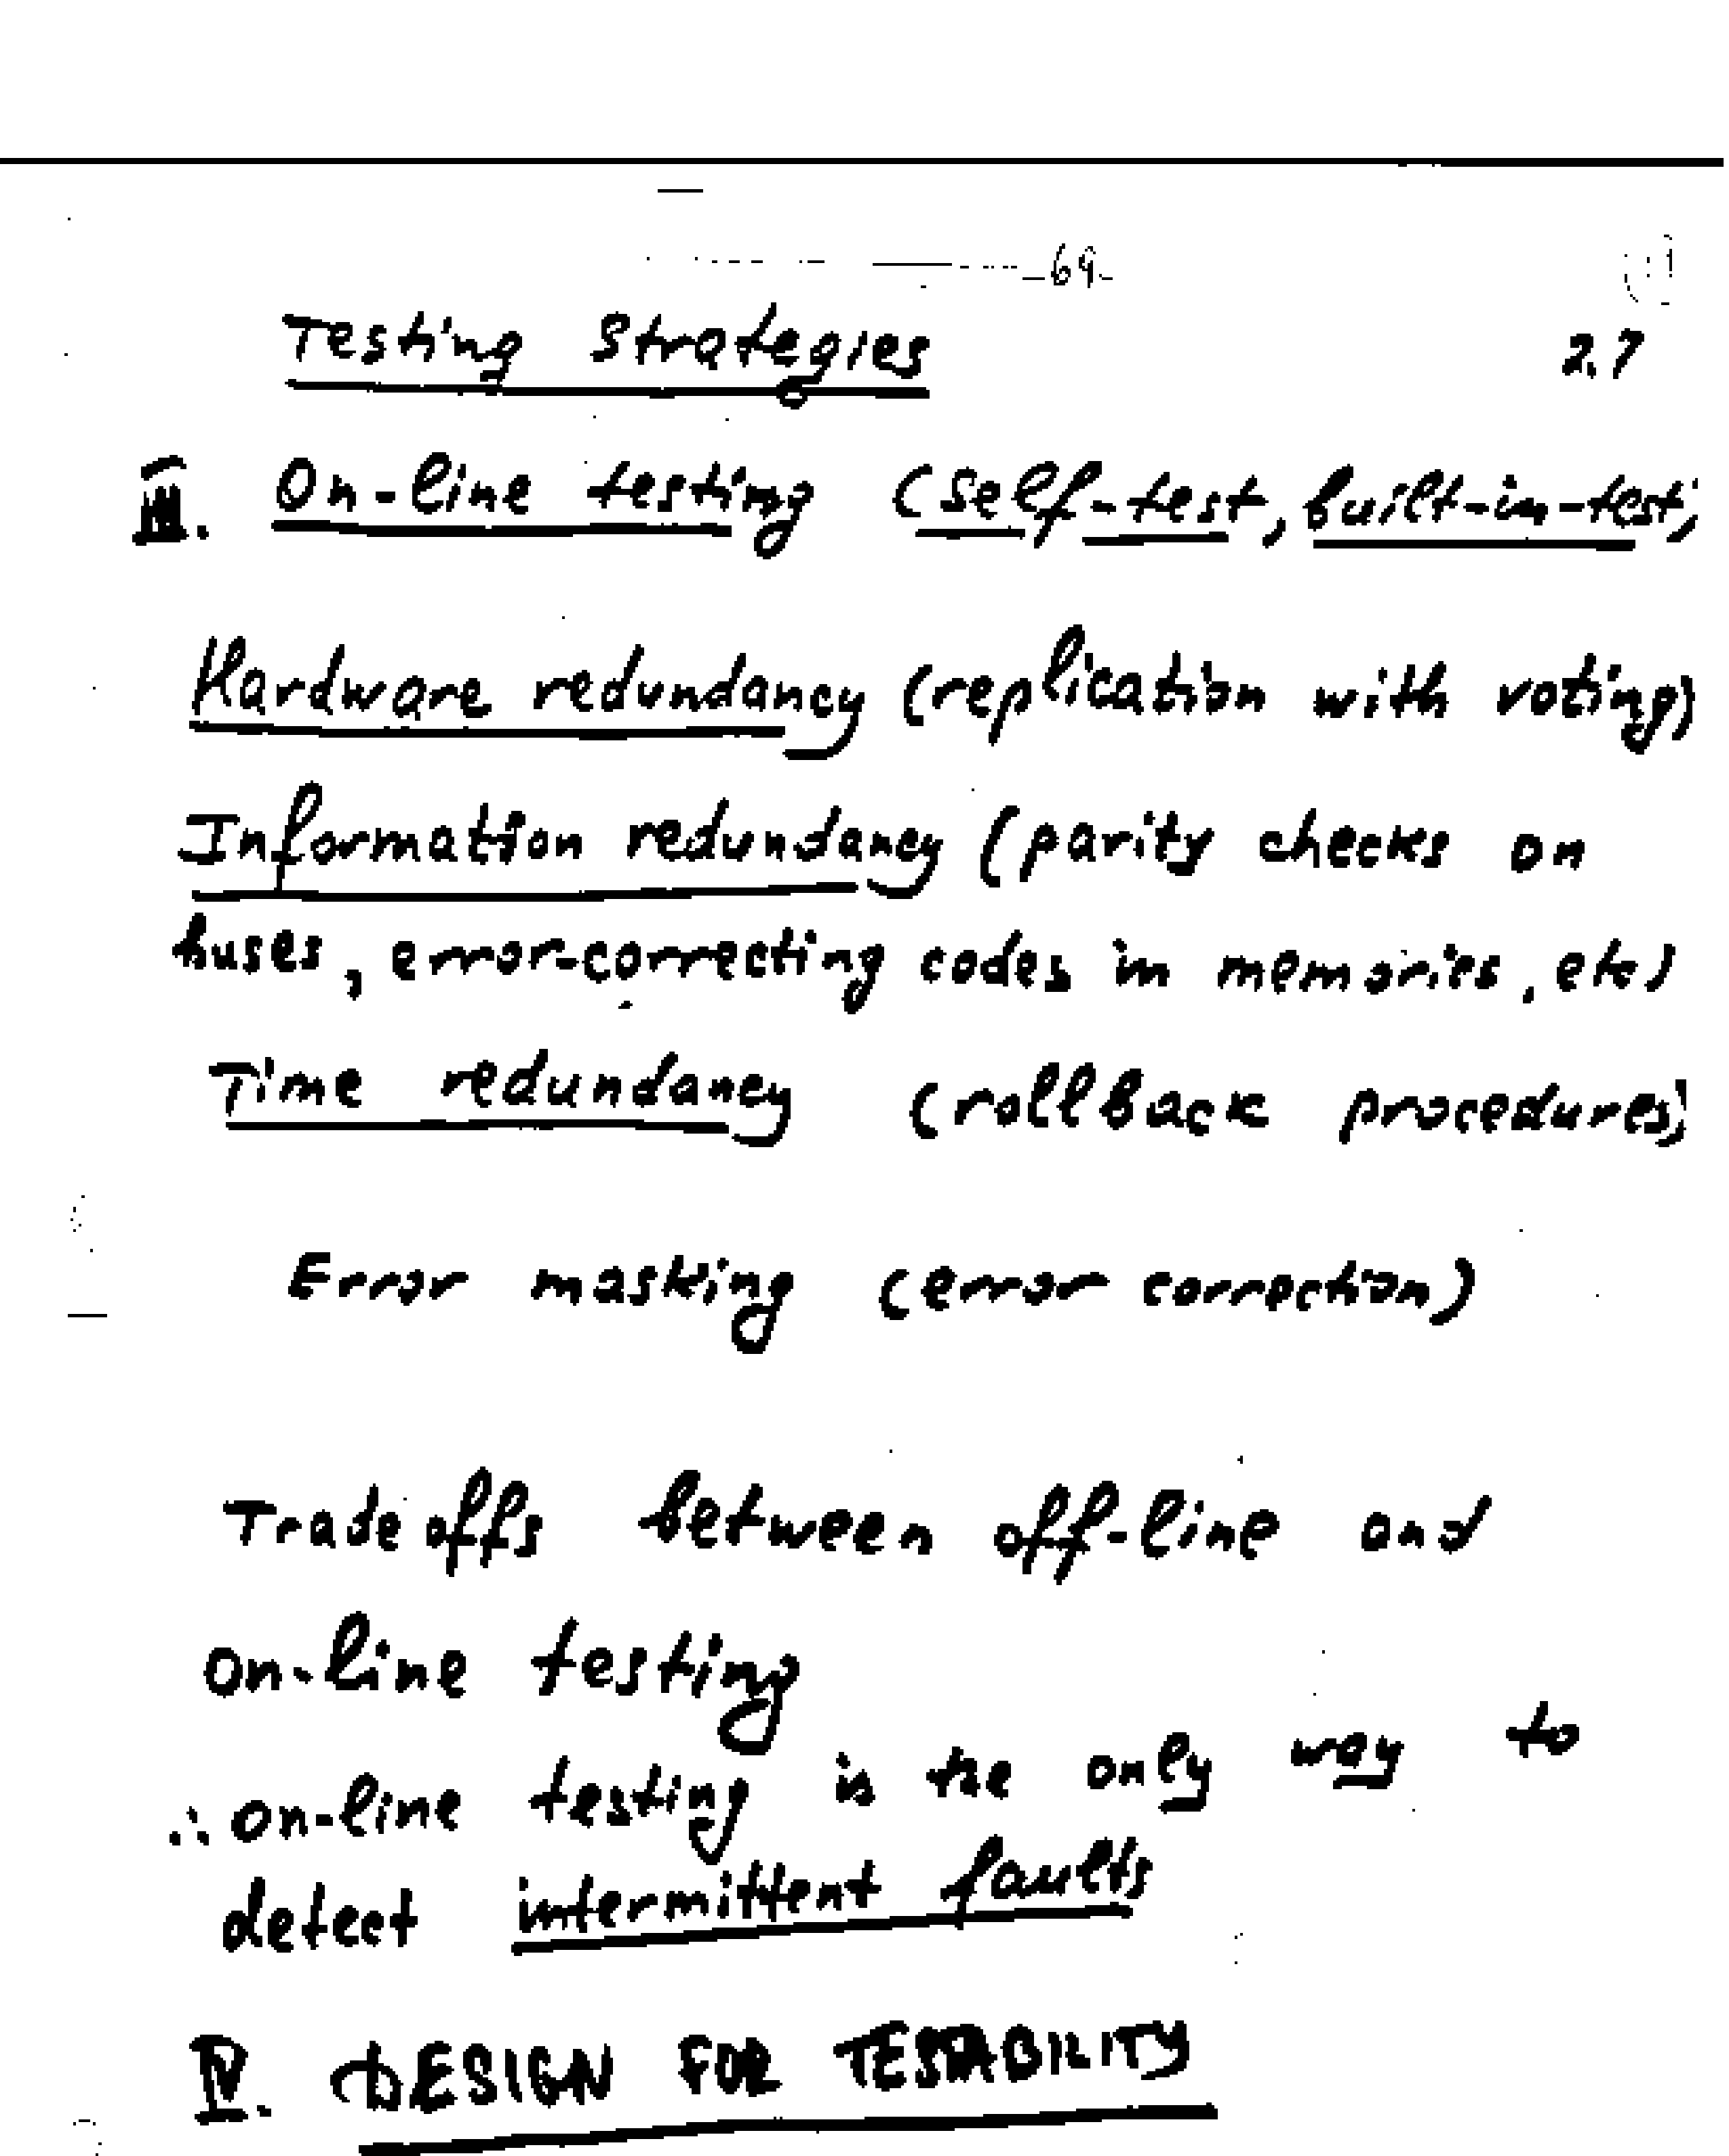 -69-
Testing Strategies 2.7
III. On-line testing (self-test, built-in-test)
Hardware redundancy (replication with voting)
Information redundancy (parity checks on
buses, error-correcting codes in memories, etc)
Time redundancy (rollback procedures)
Error masking (error correction)
Trade offs between off-line and
on-line testing
∴ on-line testing is the only way to
detect intermittent faults
IV. DESIGN FOR TESTABILITY